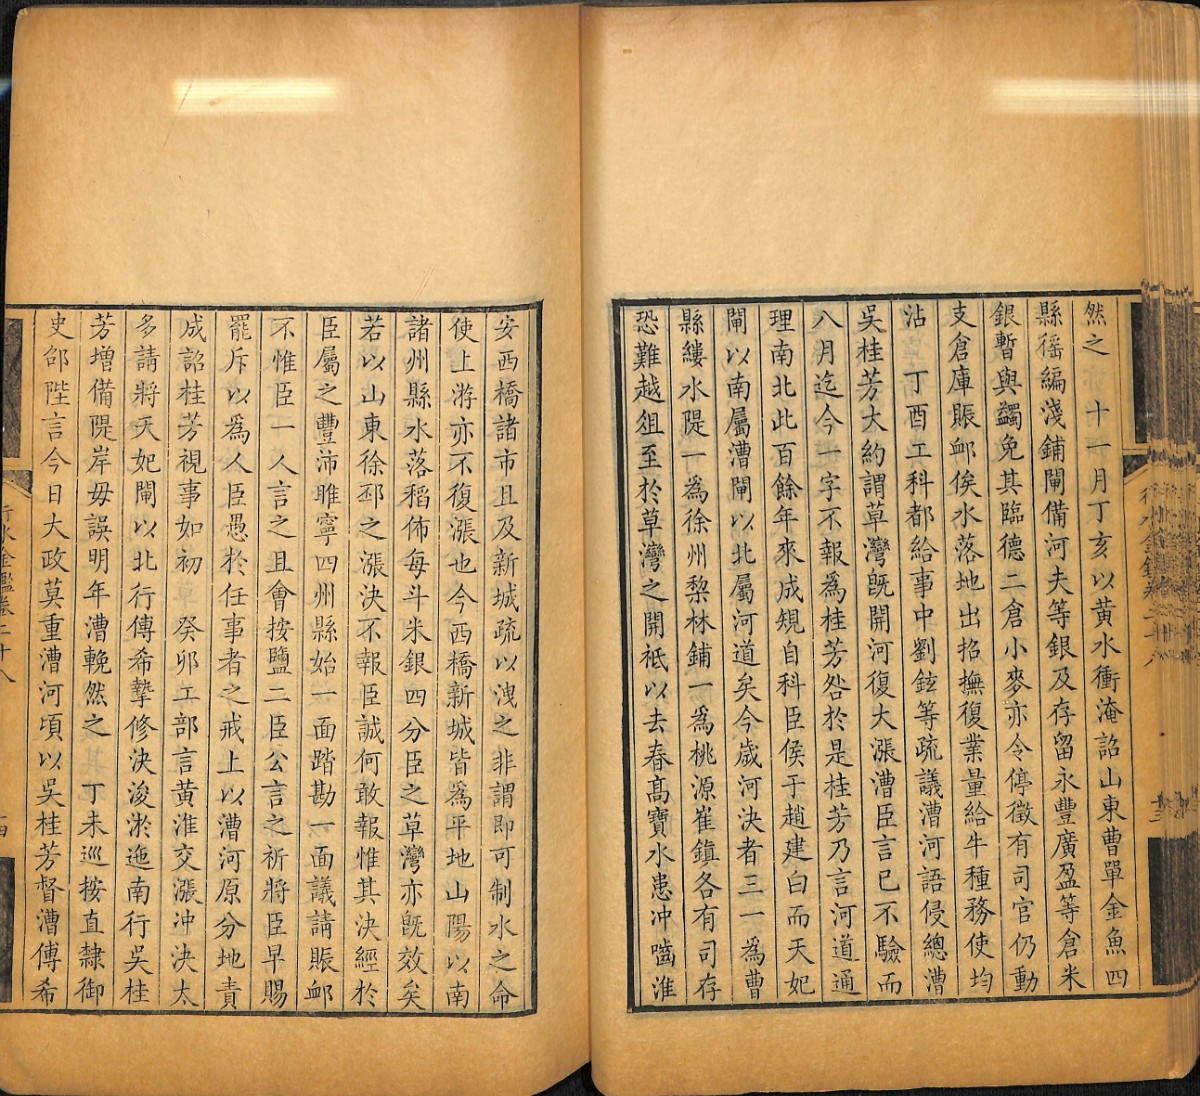 然之 十一月丁亥以黃水衝淹詔山東曹單金魚四
縣徭編淺鋪閘備河夫等銀及存留永豐廣盈等倉米
銀暫與蠲免其臨德二倉小麥亦令停徵有司官仍動
支倉庫賑卹俟水落地出招撫復業量給牛種務使均
沾 丁酉工科都給事中劉鉉等疏議漕河語侵總漕
吳桂芳大約謂草灣旣開河復大漲漕臣言已不驗而
八月迄今一字不報爲桂芳咎於是桂芳乃言河道通
理南北此百餘年來成規自科臣侯于趙建白而天妃
閘以南屬漕閘以北屬河道矣今歲河決者三一爲曹
縣縷水隄一爲徐州梨林鋪一爲桃源崔鎮各有司存
恐難越俎至於草灣之開祗以去春高寶水患冲嚙淮
安西橋諸市且及新城疏以洩之非謂即可制水之命
使上游亦不復漲也今西橋新城皆爲平地山陽以南
諸州縣水落稻佈每斗米銀四分臣之草灣亦旣效矣
若以山東徐邳之漲決不報臣誠何敢報惟其決經於
臣屬之豐沛睢寧四州縣始一面踏勘一面議請賑卹
不惟臣一人言之且會按鹽二臣公言之祈將臣早賜
罷斥以爲人臣愚於任事者之戒上以漕河原分地責
成詔桂芳視事如初 癸卯工部言黃淮交漲冲決太
多請將天妃閘以北行傅希摯修決浚淤迤南行吳桂
芳增備隄岸毋誤明年漕輓然之 丁未巡按直隸御
史邰陛言今日大政莫重漕河頃以吳桂芳督漕傅希
行水金鑑卷二十八